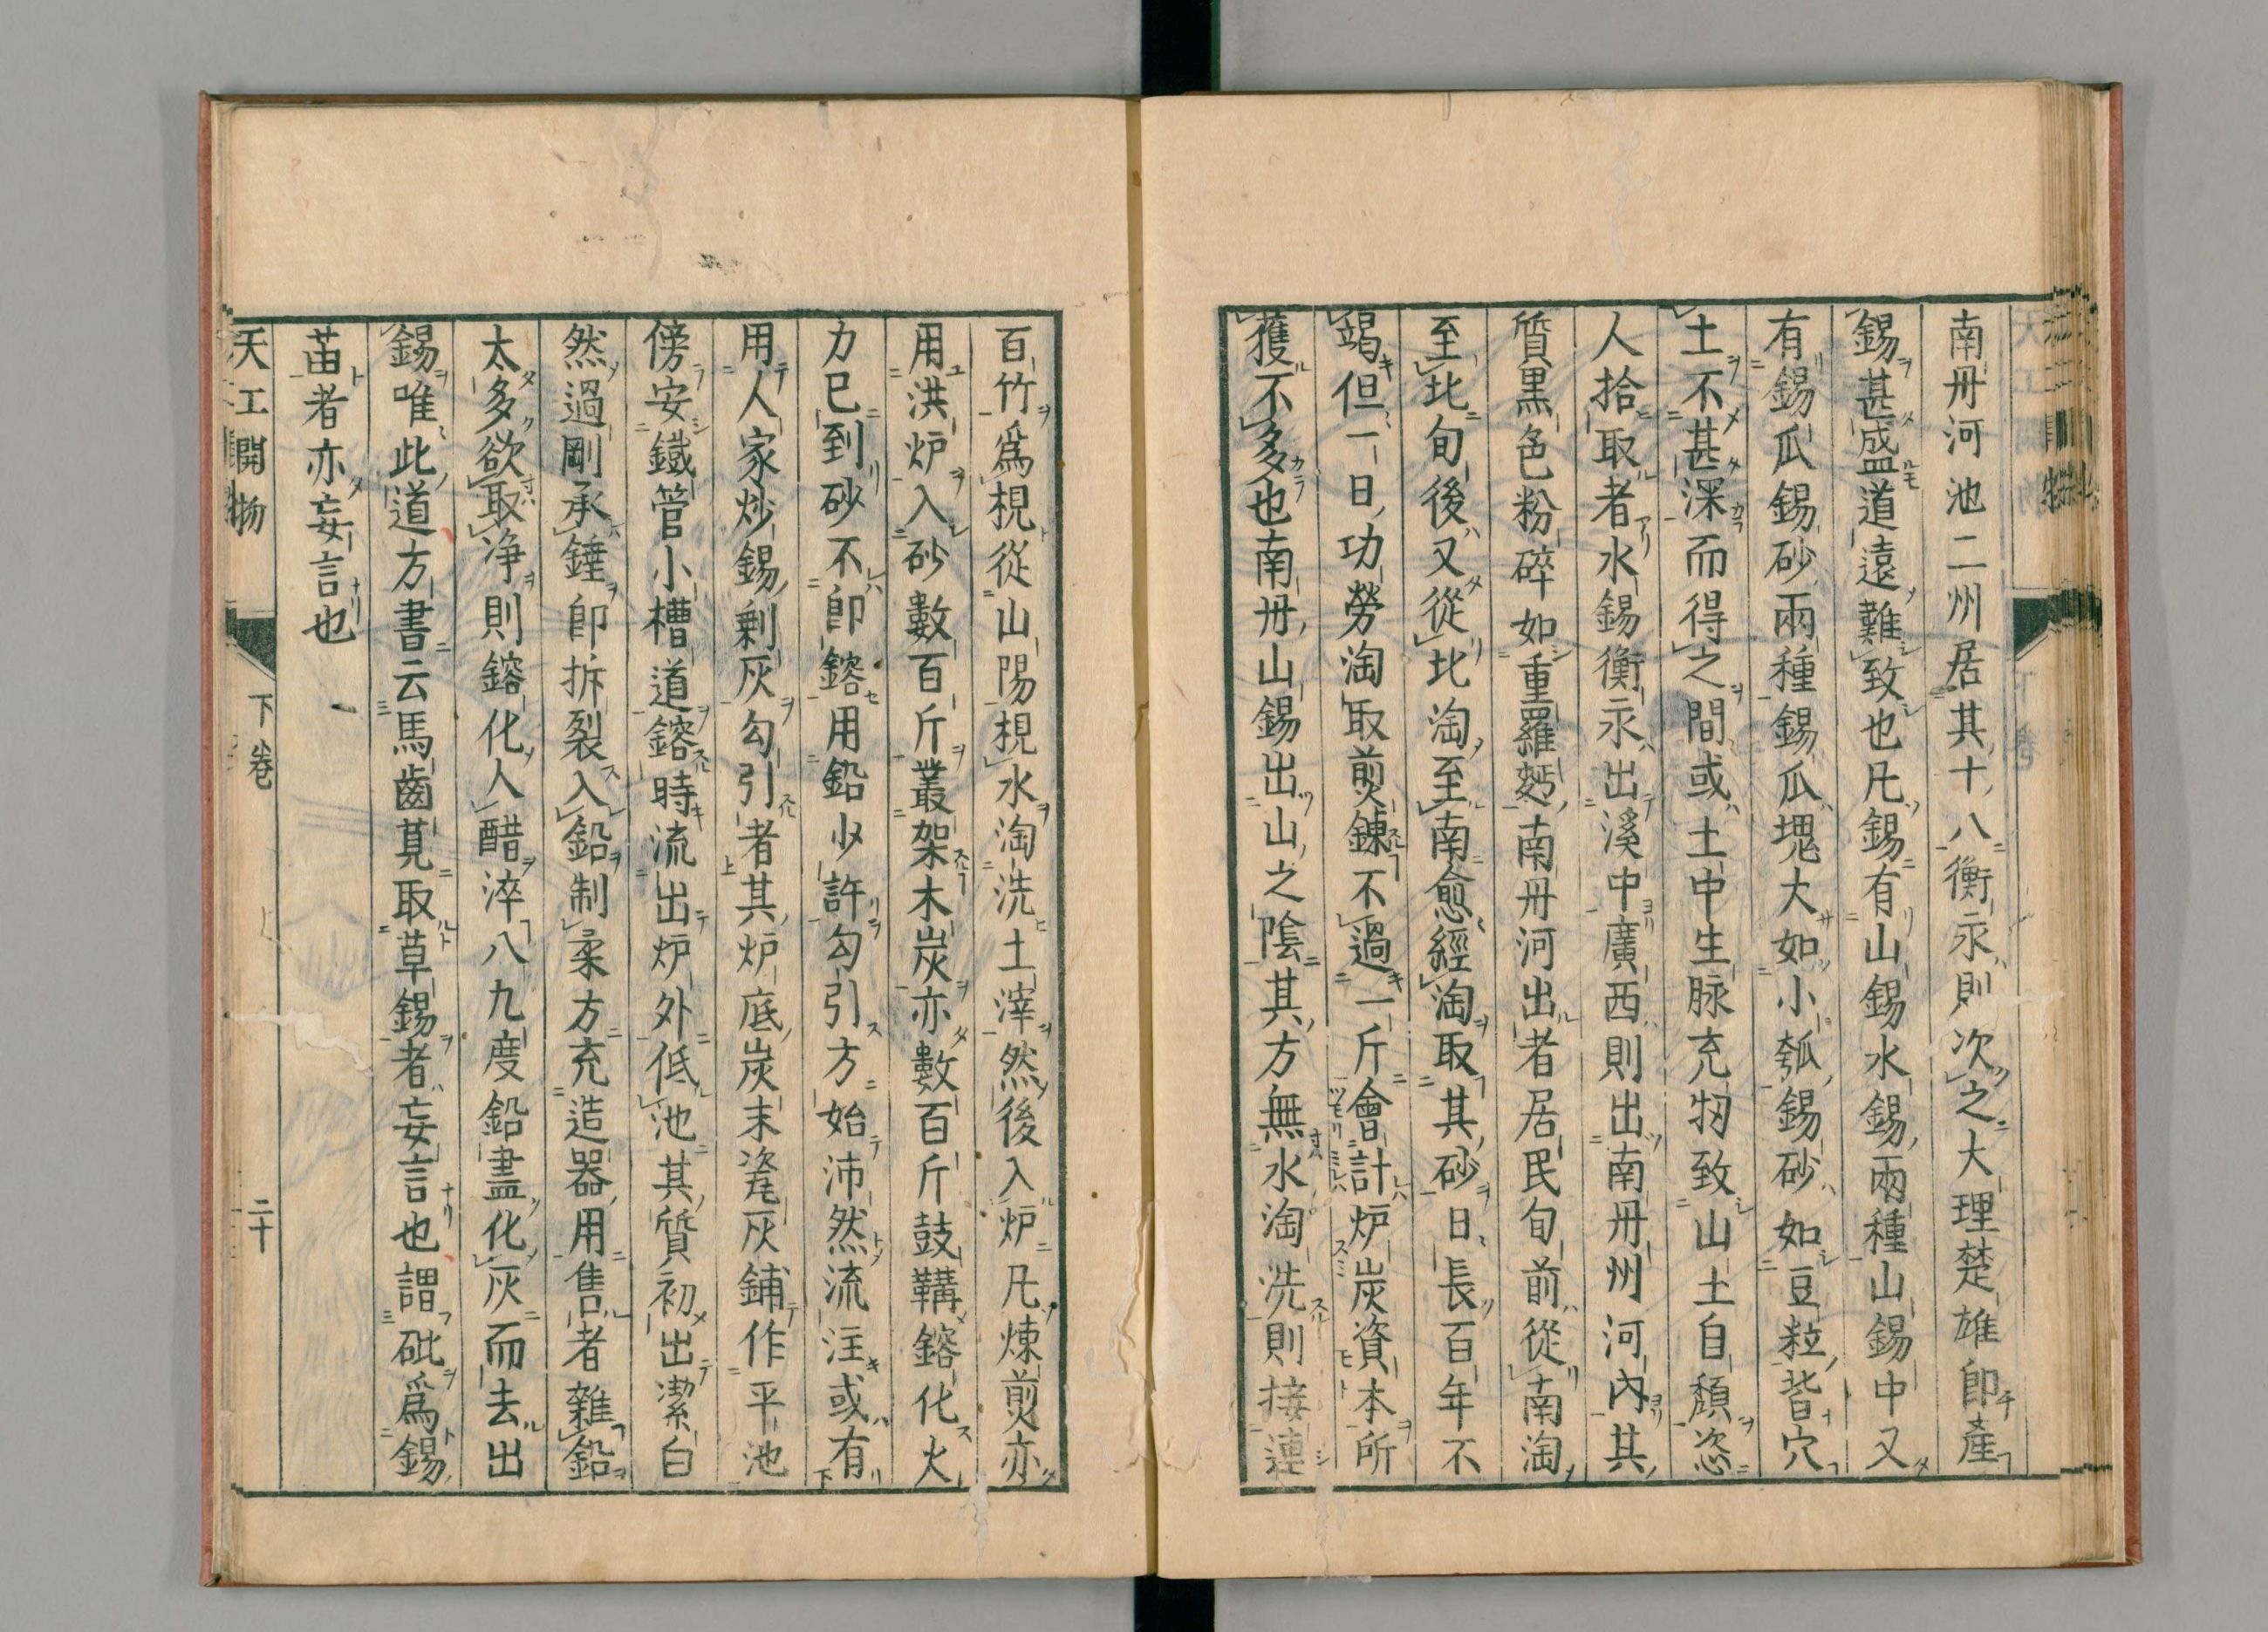 南丹河池二州居其十八衡永則次之大理楚雄即產
錫甚盛道遠難致也凡錫有山錫水錫兩種山錫中又
有錫瓜錫砂兩種錫瓜塊大如小瓠錫砂如豆粒皆穴
土不甚深而得之間或土中生脉充牣致山土自頹恣
人拾取者水錫衡永出溪中廣西則出南丹州河內其
質黑色粉碎如重羅麪南丹河出者居民旬前從南淘
至北旬後又從北淘至南愈經淘取其砂日長百年不
竭但一日功勞淘取煎鍊不過一斤會計炉炭資本所
獲不多也南丹山錫出山之陰其方無水淘洗則接連
百竹爲梘從山陽梘水淘洗土滓然後入炉凡煉煎亦
用洪炉入砂數百斤叢架木炭亦數百斤鼓鞲鎔化火
力已到砂不即鎔用鉛少許勾引方始沛然流注或有
用人家炒錫剩灰勾引者其炉底炭末瓷灰鋪作平池
傍安鐵管小槽道鎔時流出炉外低池其質初出潔白
然過剛承錘即拆裂入鉛制柔方充造器用售者雜鉛
太多欲取淨則鎔化入醋淬八九度鉛盡化灰而去出
錫唯此道方書云馬齒莧取草錫者妄言也謂砒爲錫
苗者亦妄言也
天工開物 下巻 二十